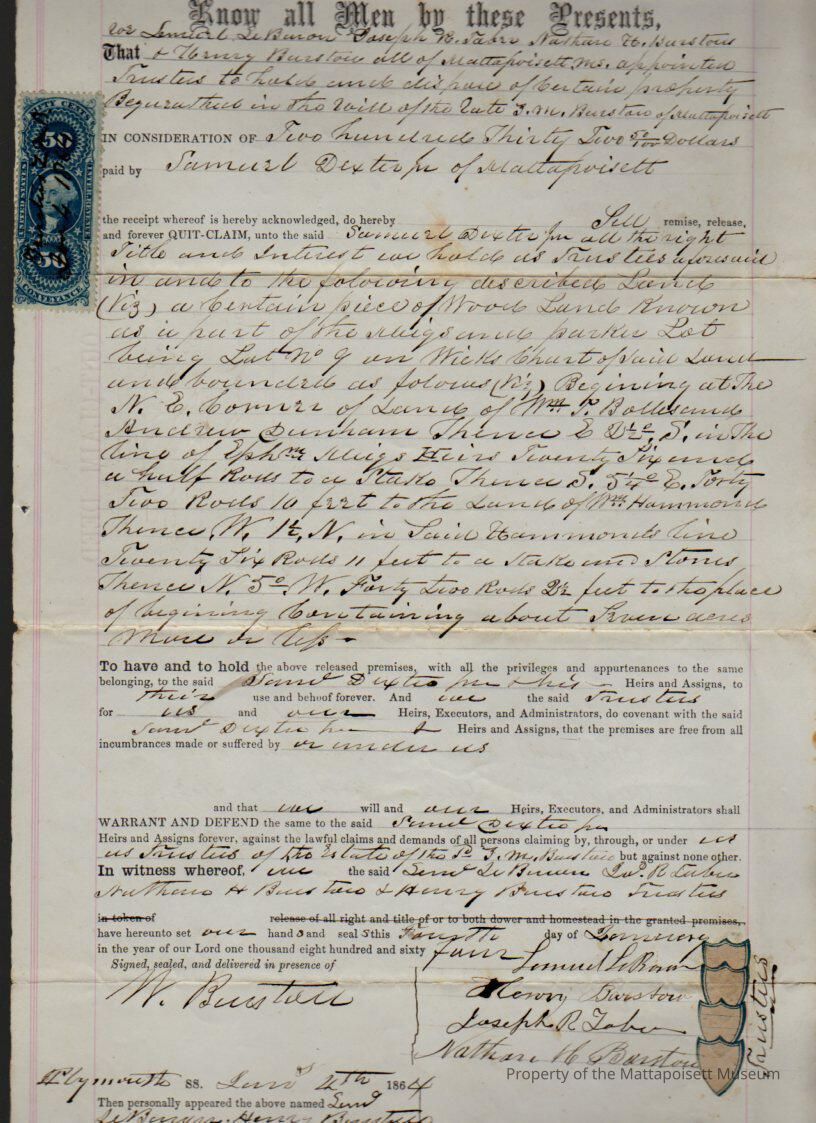 Know all Men by these Presents,
We Lemuel LeBaron Joseph R. Taber Nathan H. Barstow
That & Henry Barstow all of Mattapoisett Ms. appointed
Trustees to hold and dispose of Certain property
Bequeathed in the Will of the late of Mattapoisett
IN CONSIDERATION OF Two hundred Thirty Two 50/100 Dollars
paid by Samuel Dexter Jr of Mattapoisett
the receipt whereof is hereby acknowledged, do hereby Sell remise, release,
and forever QUIT-CLAIM, unto the said Samuel Dexter Jr all the right
Title and Interest we hold as Trustees aforesaid
in and to the following described Land
(Viz) a Certain piece of Wood Land Known
as a part of the Meigs and parker Lot
being Lot No 9 on Wicks Chart of said Land
and bounded as folows (Viz) Begining at the
N. E. Corner of Land of Wm T. Bolles and
Andrew Dunham Thence E S. in the
line of Ephm Meigs Heirs Twenty Six and
a half Rods to a Stake Thence S. 5 1/4° E. Forty
Two Rods 10 feet to the Land of Wm Hammond
Thence W. 1½ N. in Said Hammonds line
Twenty Six Rods 11 feet to a Stake and Stones
Thence N. 5° W. Forty two Rods feet to the place
of begining Containing about Seven acres
More or less
To have and to hold the above released premises, with all the privileges and appurtenances to the same
belonging, to the said Saml Dexter Jr & his Heirs and Assigns, to
their use and behoof forever. And we the said Trustees
for us and our Heirs, Executors, and Administrators, do covenant with the said
Saml Dexter Jr & Heirs and Assigns, that the premises are free from all
incumbrances made or suffered by or under us
and that we will and our Heirs, Executors, and Administrators shall
WARRANT AND DEFEND the same to the said Saml Dexter Jr
Heirs and Assigns forever, against the lawful claims and demands of all persons claiming by, through, or under us
as Trustees of the Estate of the Barstow but against none other.
In witness whereof, we the said Leml LeBaron Jos. R Taber
Nathan H Barstow & Henry Barstow Trustees
in token of release of all right and title of or to both dower and homestead in the granted premises,
have hereunto set our hands and seals this Fourth day of January
in the year of our Lord one thousand eight hundred and sixty four
Signed, sealed, and delivered in presence of
Lemuel LeBaron
W. Barstow
Henry Barstow
Joseph R Taber
Nathan H Barstow
Trustees
Property of the Mattapoisett Museum
Plymouth SS. Jany 4th 1864
Then personally appeared the above named Leml
LeBaron, Henry Barstow